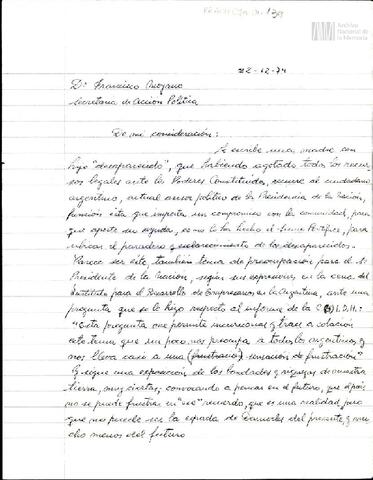 Archivo
Nacional de
la Memoria
22-12-74
Dr Francisco Moyano
Secretaria de Acción Política
De mi consideración:
Le escribe una madre con
hijo "desaparecido", que habiendo agotado todos los recur-
sos legales ante los Poderes Constituidos, recurre al ciudadano
argentino, actual asesor político de la Presidencia de la Nación,
función ésta que importa un compromiso con la comunidad, para
que aporte su ayuda, como lo ha hecho el Sumo Pontífice, para
ubicar el paradero y esclarecimiento de los desaparecidos.
Parece ser éste, también tema de preocupación para el Sr.
Presidente de la Nación, según sus expresiones en la cena del
Instituto para el Desarrollo de Empresarios en la Argentina, ante una
pregunta que se le hizo respecto al informe de la C.I.D.H.:
"Esta pregunta me permite incursionar y traer a colación
este tema que un poco nos preocupa a todos los argentinos, y
nos lleva casi a una (frustración) sensación de frustración"
Y sigue una exposición de las bondades y riquezas de nuestra
tierra, muy ciertas; convocando a pensar en el futuro, que el país
no se puede frustrar en "ese" recuerdo, que es una realidad, pero
que no puede ser la espada de Damocles del presente, y mu-
cho menos del futuro